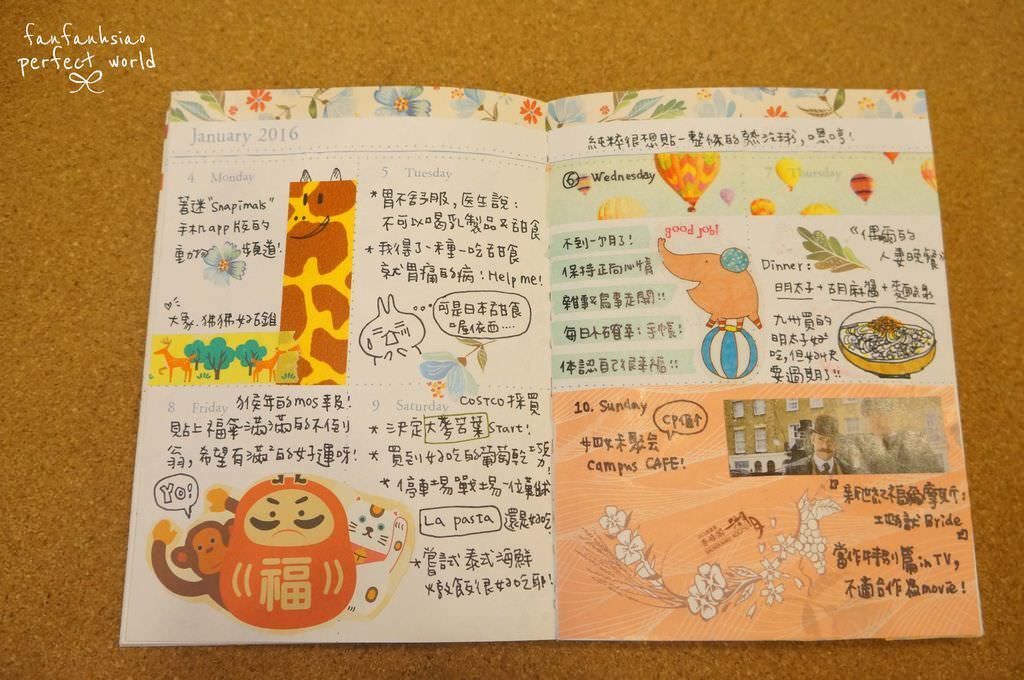 fanfanhsiao
perfect world
January 2016
純粹很想貼一整條的熱汽球，嗯哼！
4 Monday
著迷"Snapimals"
手机app版的
動物 頻道！
大象、狒狒好可
5 Tuesday
*胃不舒服，医生說：
不可以喝乳製品又甜食
*我得了一種一吃甜食
就胃痛的病！Help me！
可是日本甜食
6 Wednesday
good job!
不到一个月了！
保持正向心情
雜事鳥事走開！！
每日小確幸：手帳！
体認自己很幸福！！
7 Thursday
《偶爾的
人妻晚餐》
Dinner：
明太子+胡麻醬+
九州買的
明太子好
吃，但好快
要過期了！！
8 Friday
猴年的mos
貼上福氣滿滿的不倒
翁，希望有滿滿的好運呀！
Yo!
福
9 Saturday
COSTCO採買
*決定大麥苦葉Start！
*買到好吃的葡萄乾
*停車場戰場一位難求
La pasta 還是好吃
*嘗試泰式海鮮
燉飯很好吃耶！
10. Sunday
CP值
聚会
campus CAFE！
『新世紀福爾摩斯：
Bride』
當作特別篇in TV，
不適合作為movie！